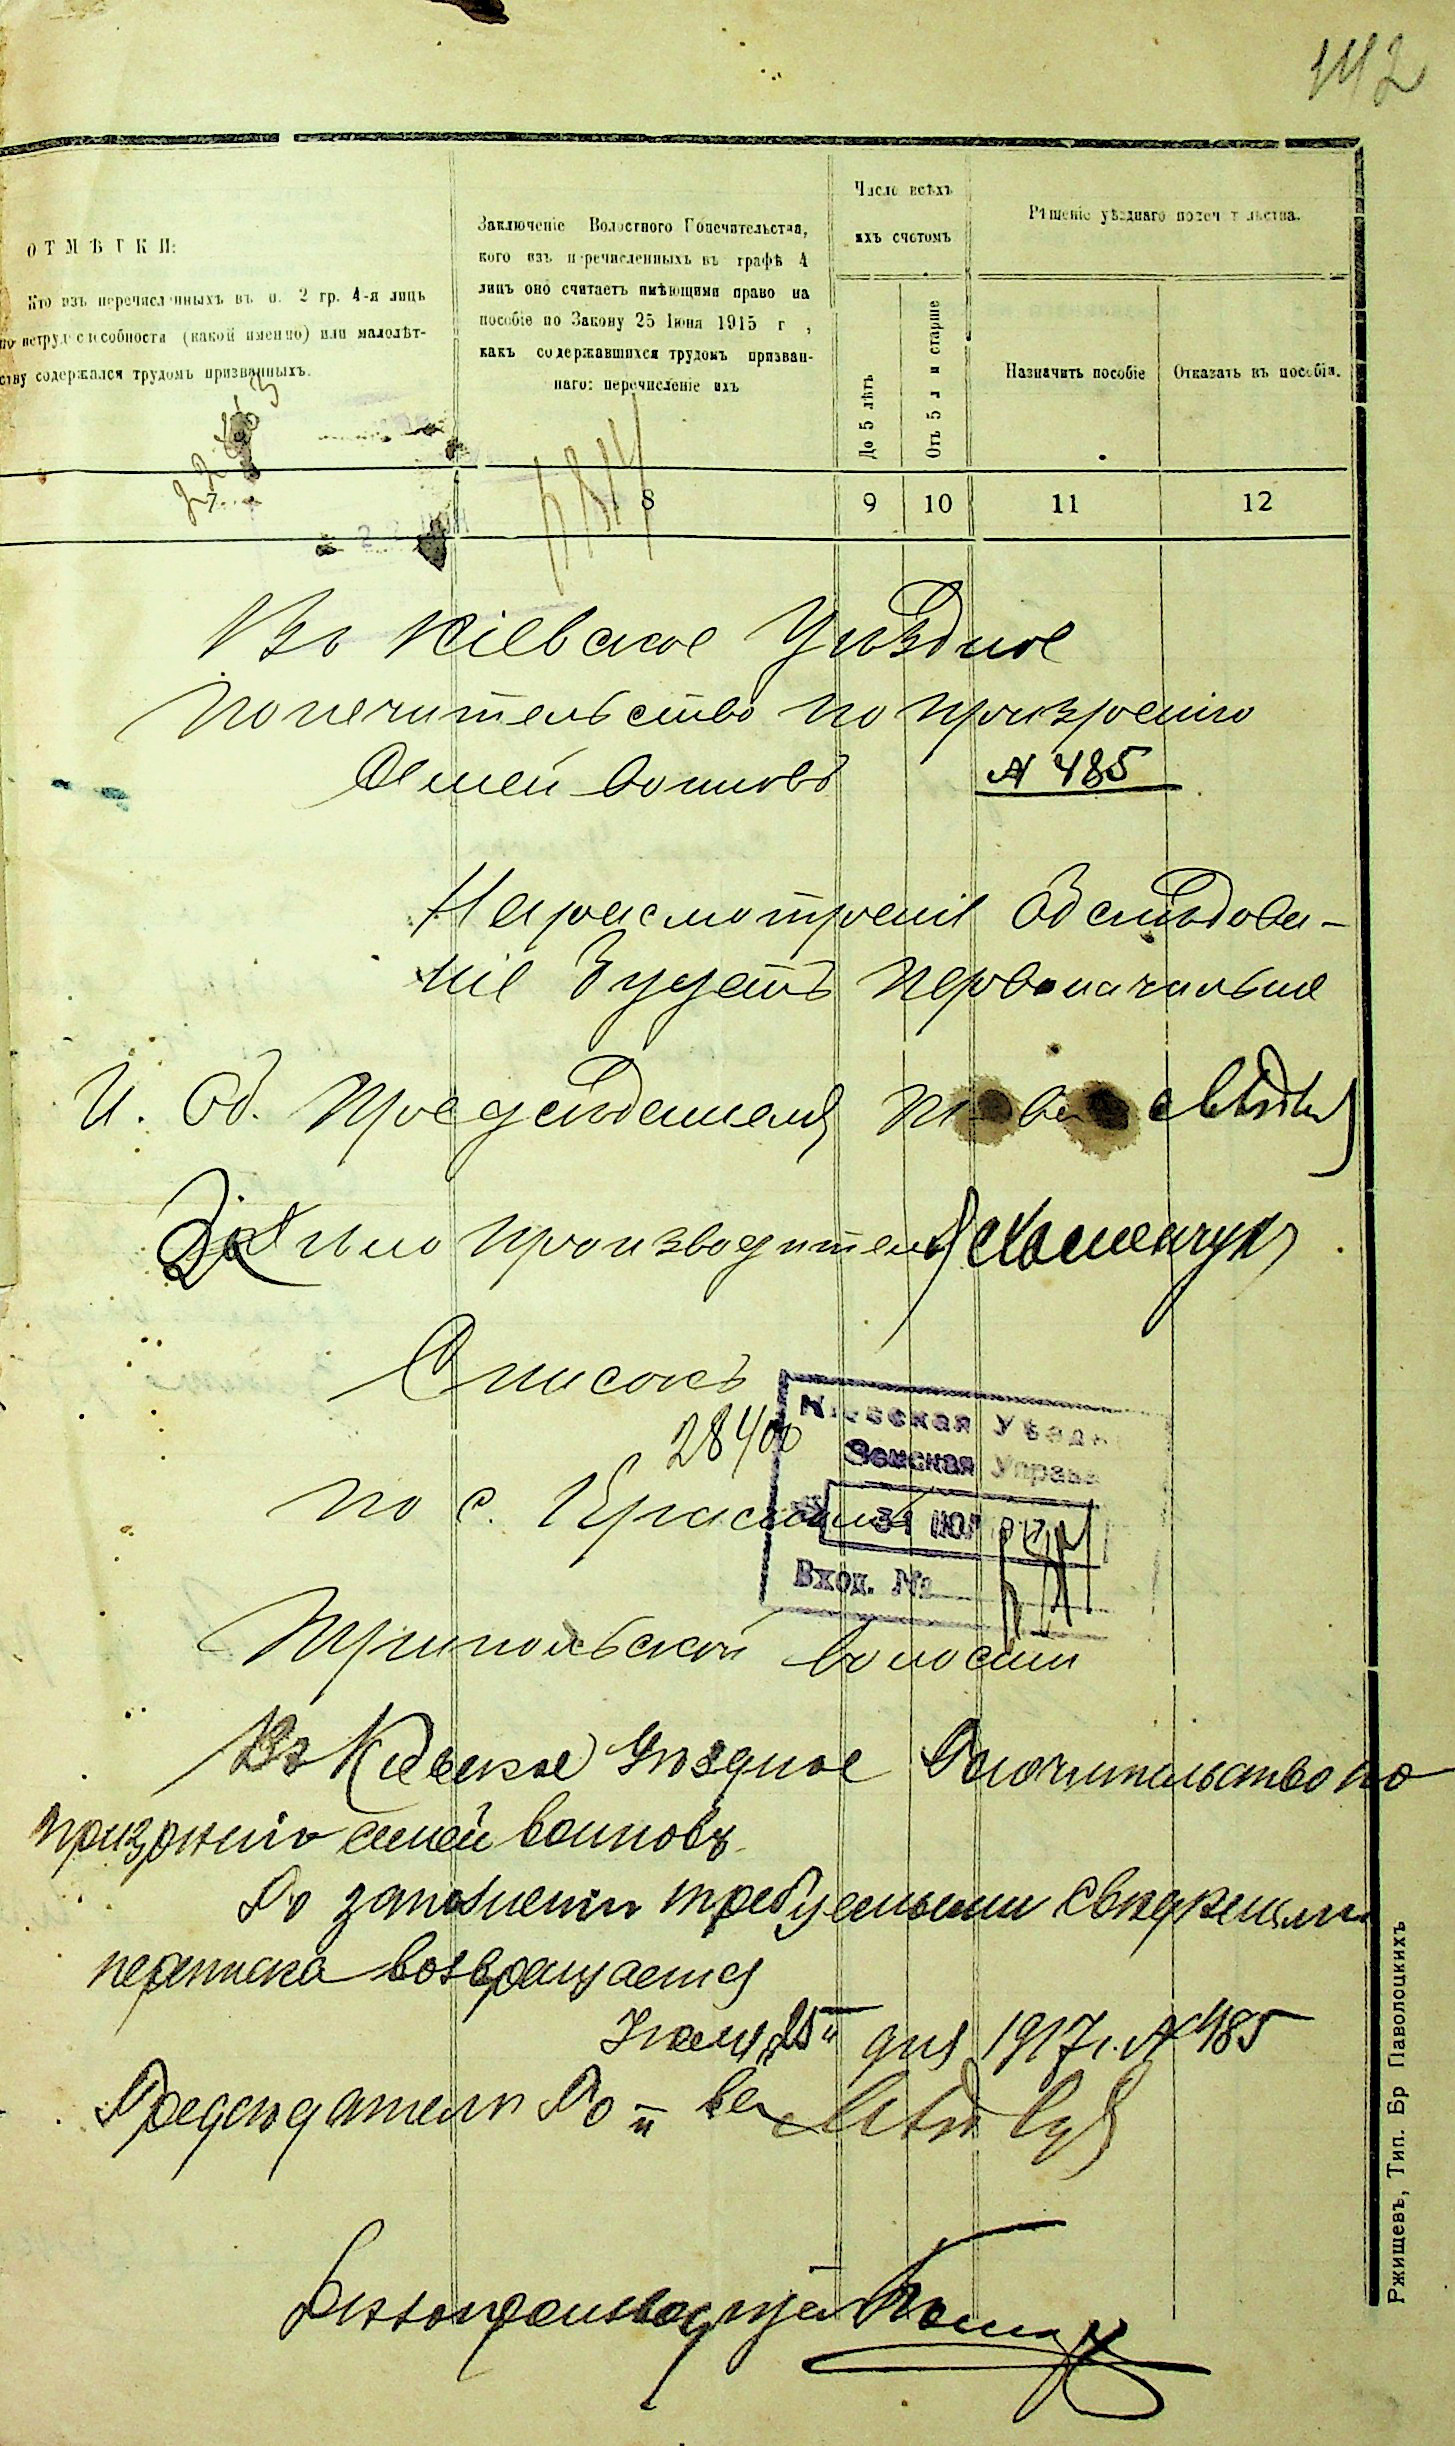 142
ОТМѢТКИ:
Кто изъ перечисленныхъ въ п. 2 гр. 4-я лицъ
по нетрудоспособности (какой именно) или малолѣт-
ству содержался трудомъ призванныхъ.
Заключеніе Волостного Попечительства,
кого изъ перечисленныхъ въ графѣ 4
лицъ оно считаетъ имѣющими право на
пособіе по Закону 25 Іюня 1915 г ,
какъ содержавшихся трудомъ призван-
наго: перечисленіе ихъ
Число всѣхъ
ихъ счетомъ
До 5 лѣтъ
Отъ 5 л и старше
Рѣшеніе уѣзднаго попечительства.
Назначить пособіе
Отказать въ пособіи.
7
8
9
10
11
12
Въ Кіевское Уѣздное
Попечительство по призрѣнію
Семей воиновъ
№ 485
На расмотреніе Обслѣдова-
ніе будетъ первоначальне
И. Об. Предсѣдателя
Дѣлопроизводитель
Списокъ
28400
по с.
Трипольской волости
Кіевская Уѣздн
Земская Управа
31 ІЮЛ 1917
Вход. №
Въ Кіевское Уѣздное Попечительство по
призрѣнію семей воиновъ
По заполненіи требуемыми свѣдѣніями
переписка возвращается
25 дня 1917 г. № 485
Предсѣдатель По-ва
Дѣлопроизводитель
Ржищевъ, Тип. Бр Паволоцкихъ